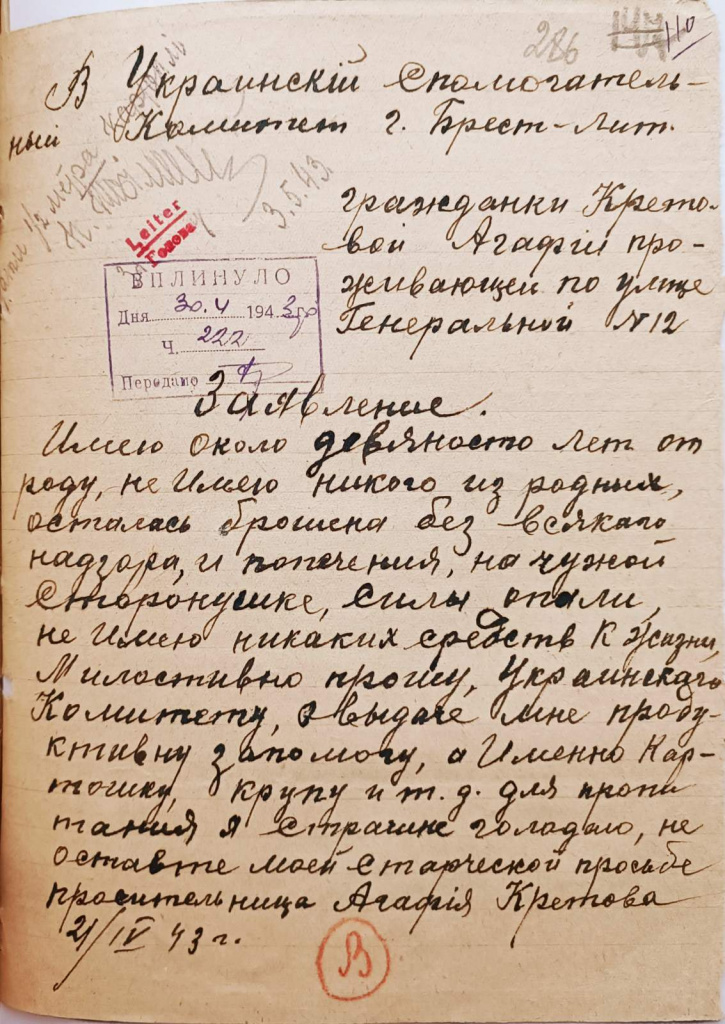 286 110
В Украинскій Спомогатель-
ный Комитет г. Брест-Лит.
1/2 мѣра картоплі
3.5.43
гражданки Крето-
вой Агафіи про-
живающей по улице
Генеральной №12
Leiter
Голова
ВПЛИНУЛО
Дня 30.V 1943 гр
Ч. 222
Передано
Заявление.
Имею около девяносто лет от
роду, не Имею никого из родных,
осталась брошена без всякаго
надзора, и попечения, на чужой
Сторонушке, силы опали,
не Имею никаких средств к жизни,
Милостивно прошу, Украинскаго
Комитету, о выдаче мне проду-
ктивну запомогу, а Именно Кар-
тошку, крупу и т. д. для пропи
тания я Страчине голодаю, не
оставте моей Старческой просьбе
просительница Агафія Кретова
21/IV 43 г.
В